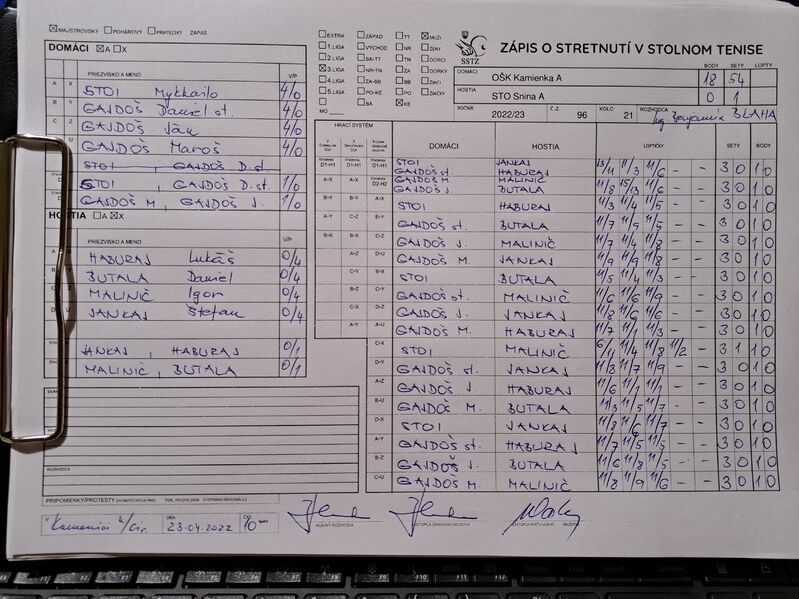 MAJSTROVSKÝ POHÁROVÝ PRIATEĽSKÝ ZÁPAS
DOMÁCI A X
PRIEZVISKO A MENO V/P
A X STOI Mykhailo 4/0
B Y GAJDOŠ Daniel st. 4/0
C Z GAJDOŠ Ján 4/0
U GAJDOŠ Maroš 4/0
STOI, GAJDOŠ D.st
STOI, GAJDOŠ D.st. 1/0
GAJDOŠ M, GAJDOŠ J. 1/0
HOSTIA A X
PRIEZVISKO A MENO V/P
HABURAJ Lukáš 0/4
BUTALA Daniel 0/4
MALINIČ Igor 0/4
JANKAJ Štefan 0/4
JANKAJ, HABURAJ 0/1
MALINIČ, BUTALA 0/1
ROZHODCA
PRIPOMIENKY/PROTESTY
V Kamenici n/Cir. DŇA 23.04.2022 ČAS 10
EXTRA ZÁPAD TT MUŽI
1.LIGA VÝCHOD NR ŽENY
2.LIGA BA-TT TN DORCI
3.LIGA NR-TN ZA DORKY
4.LIGA ZA-BB BB ŽIACI
5.LIGA PO-KE PO ŽIAČKY
MO BA KE
SSTZ
ZÁPIS O STRETNUTÍ V STOLNOM TENISE
BODY SETY LOPTY
DOMÁCI OŠK Kamienka A 18 54
HOSTIA STO Snina A 0 1
ROČNÍK 2022/23 Č.Z. 96 KOLO 21 ROZHODCA Ing. Benjamín BLAHA
HRACÍ SYSTÉM DOMÁCI HOSTIA LOPTIČKY SETY BODY
STOI JANKAJ
GAJDOŠ st. HABURAJ 13/11 11/3 11/6 - - 3 0 1 0
GAJDOŠ M. MALINIČ
GAJDOŠ J. BUTALA 11/8 15/13 11/6 - - 3 0 1 0
STOI HABURAJ 11/3 11/4 11/5 - - 3 0 1 0
GAJDOŠ st. BUTALA 11/7 11/9 11/5 - - 3 0 1 0
GAJDOŠ J. MALINIČ 11/7 11/4 11/8 - - 3 0 1 0
GAJDOŠ M. JANKAJ 11/9 11/6 11/9 - - 3 0 1 0
STOI BUTALA 11/5 11/4 11/3 - - 3 0 1 0
GAJDOŠ st. MALINIČ 11/6 11/6 11/9 - - 3 0 1 0
GAJDOŠ J. JANKAJ 11/8 11/6 11/6 - - 3 0 1 0
GAJDOŠ M. HABURAJ 11/7 11/1 11/3 - - 3 0 1 0
STOI MALINIČ 6/11 11/4 11/8 11/2 - 3 1 1 0
GAJDOŠ st. JANKAJ 11/8 11/7 11/9 - - 3 0 1 0
GAJDOŠ J. HABURAJ 11/6 11/1 11/1 - - 3 0 1 0
GAJDOŠ M. BUTALA 11/3 11/5 11/7 - - 3 0 1 0
STOI JANKAJ 11/8 11/6 11/7 - - 3 0 1 0
GAJDOŠ st. HABURAJ 11/7 11/5 11/5 - - 3 0 1 0
GAJDOŠ J. BUTALA 11/6 11/8 11/5 - - 3 0 1 0
GAJDOŠ M. MALINIČ 11/8 11/9 11/6 - - 3 0 1 0
HLAVNÝ ROZHODCA